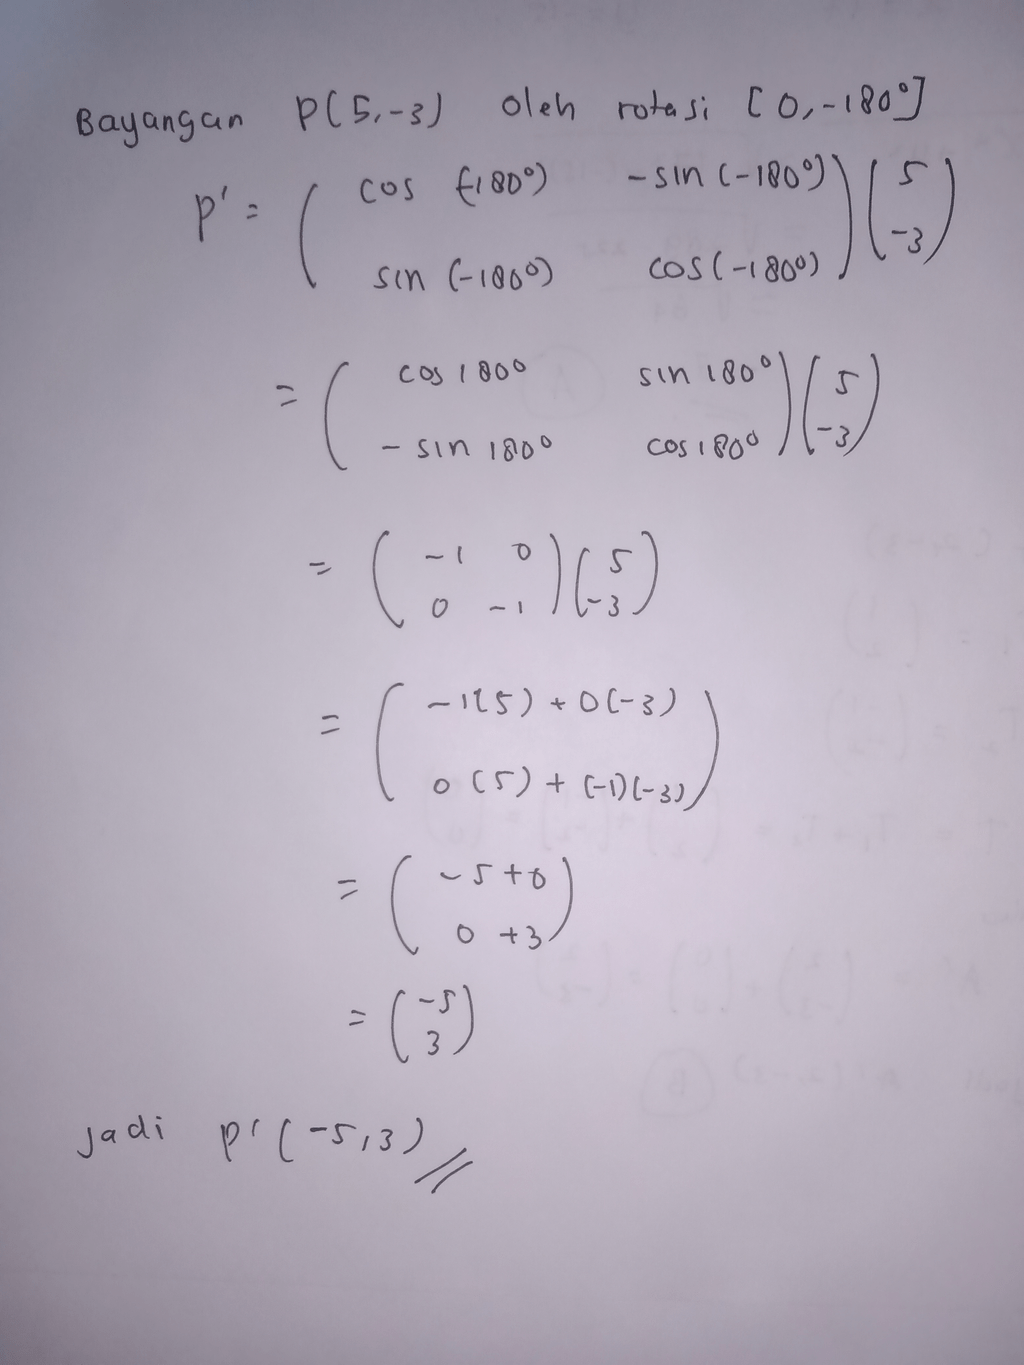 Bayangan P(5,-3) oleh rotasi [0,-180°]
P' = ( cos (-180°) -sin (-180°) ) ( 5 )
( sin (-180°) cos (-180°) ) ( -3 )
= ( cos 180° sin 180° ) ( 5 )
( - sin 180° cos 180° ) ( -3 )
= ( -1 0 ) ( 5 )
( 0 -1 ) ( -3 )
= ( -1(5) + 0(-3) )
( 0 (5) + (-1)(-3) )
= ( -5 + 0 )
( 0 + 3 )
= ( -5 )
( 3 )
Jadi P' (-5,3)